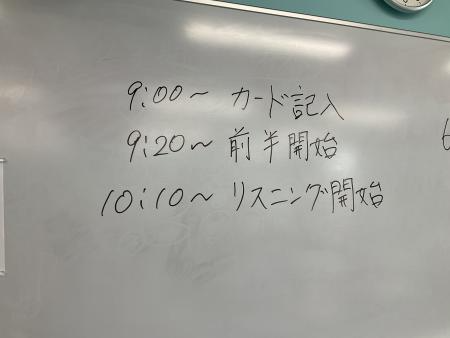 9:00〜 カード記入
9:20〜 前半開始
10:10〜 リスニング開始